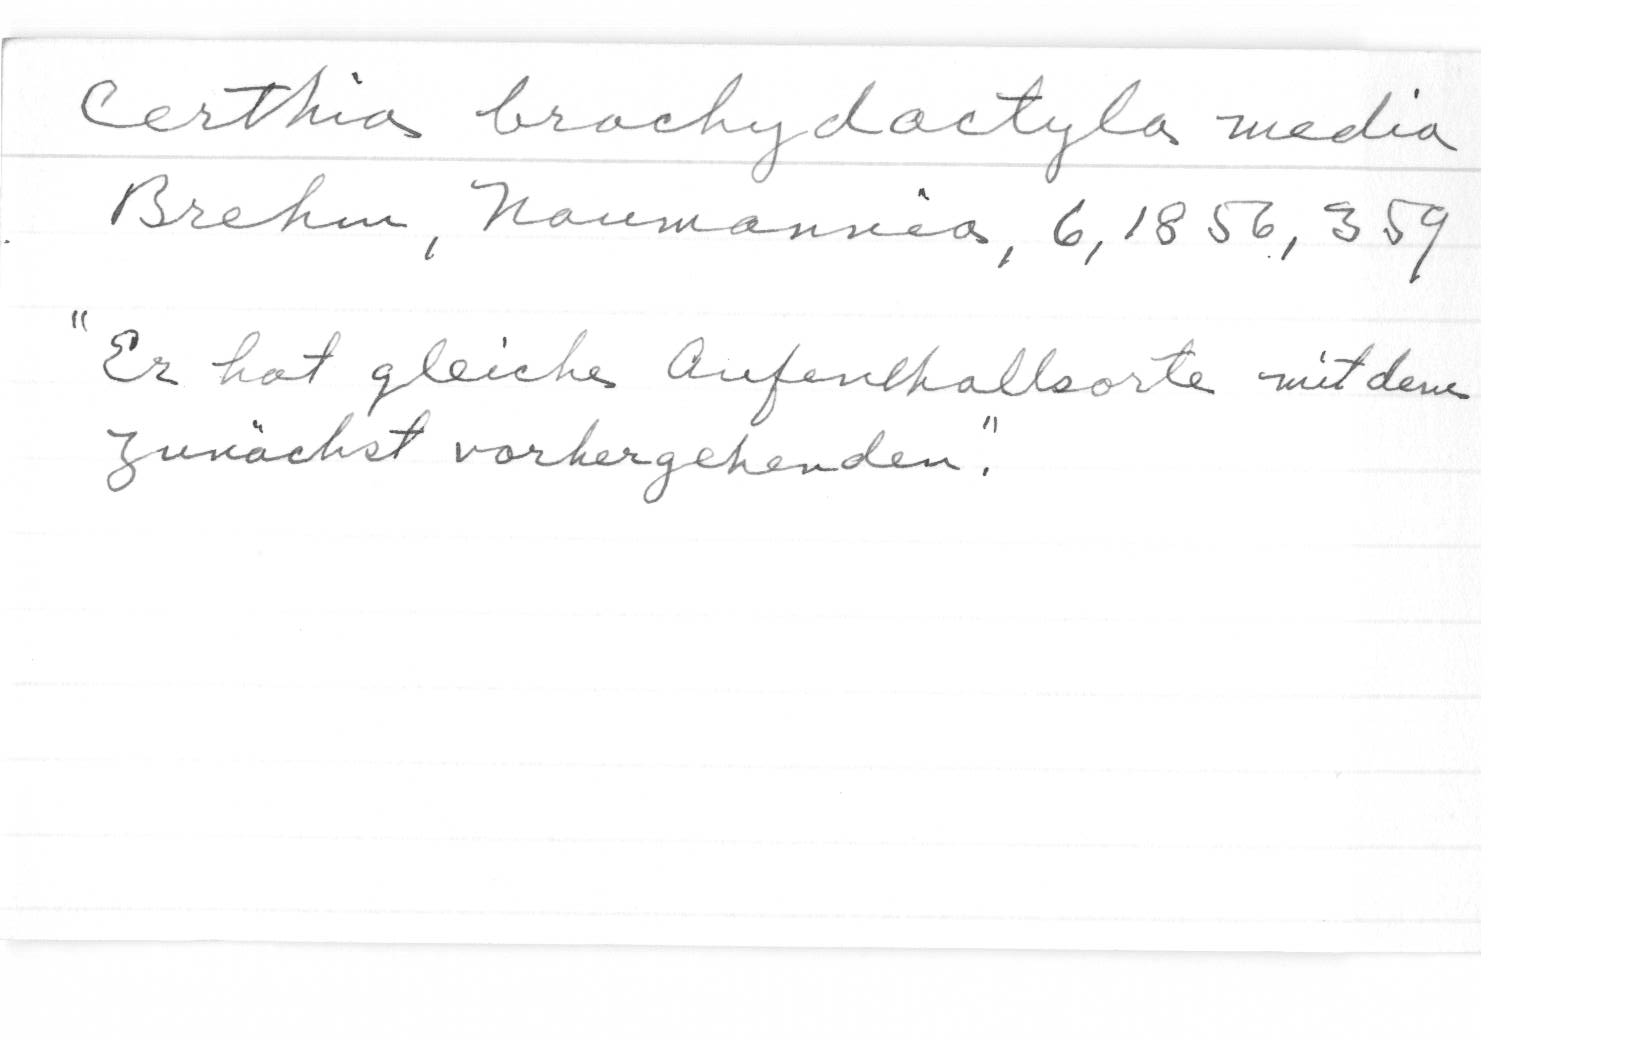 Certhia brachydactyla media
Brehm, Naumannia, 6, 1856, 359
"Er hat gleiche Aufenthaltsorte mit dem
zunächst vorhergehenden."